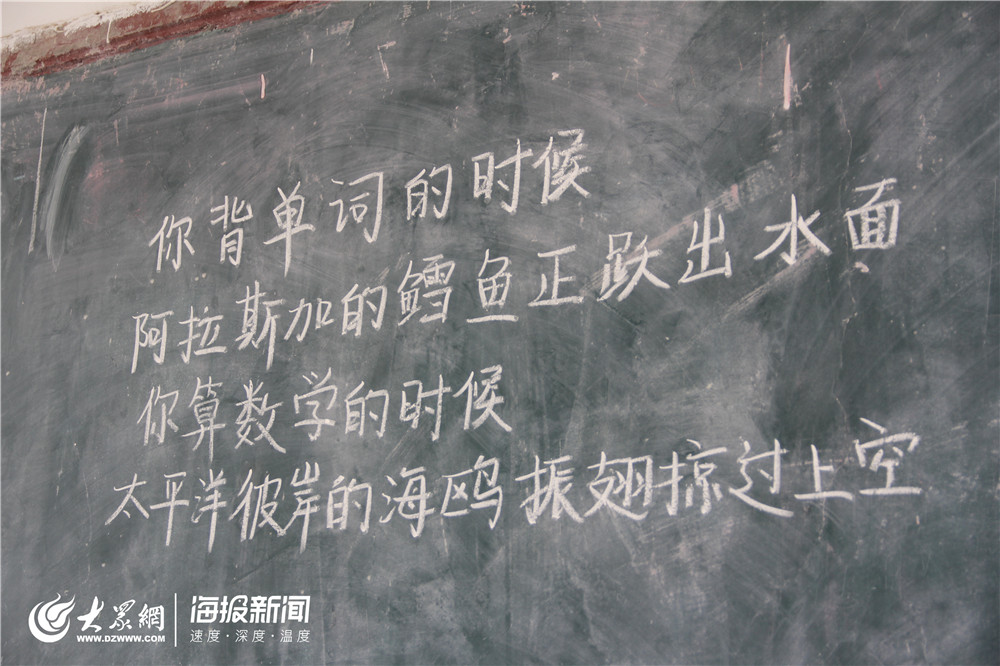 你背单词的时候
阿拉斯加的鳕鱼正跃出水面
你算数学的时候
太平洋彼岸的海鸥振翅掠过上空
大眾網
WWW.DZWWW.COM
海报新闻
速度·深度·温度